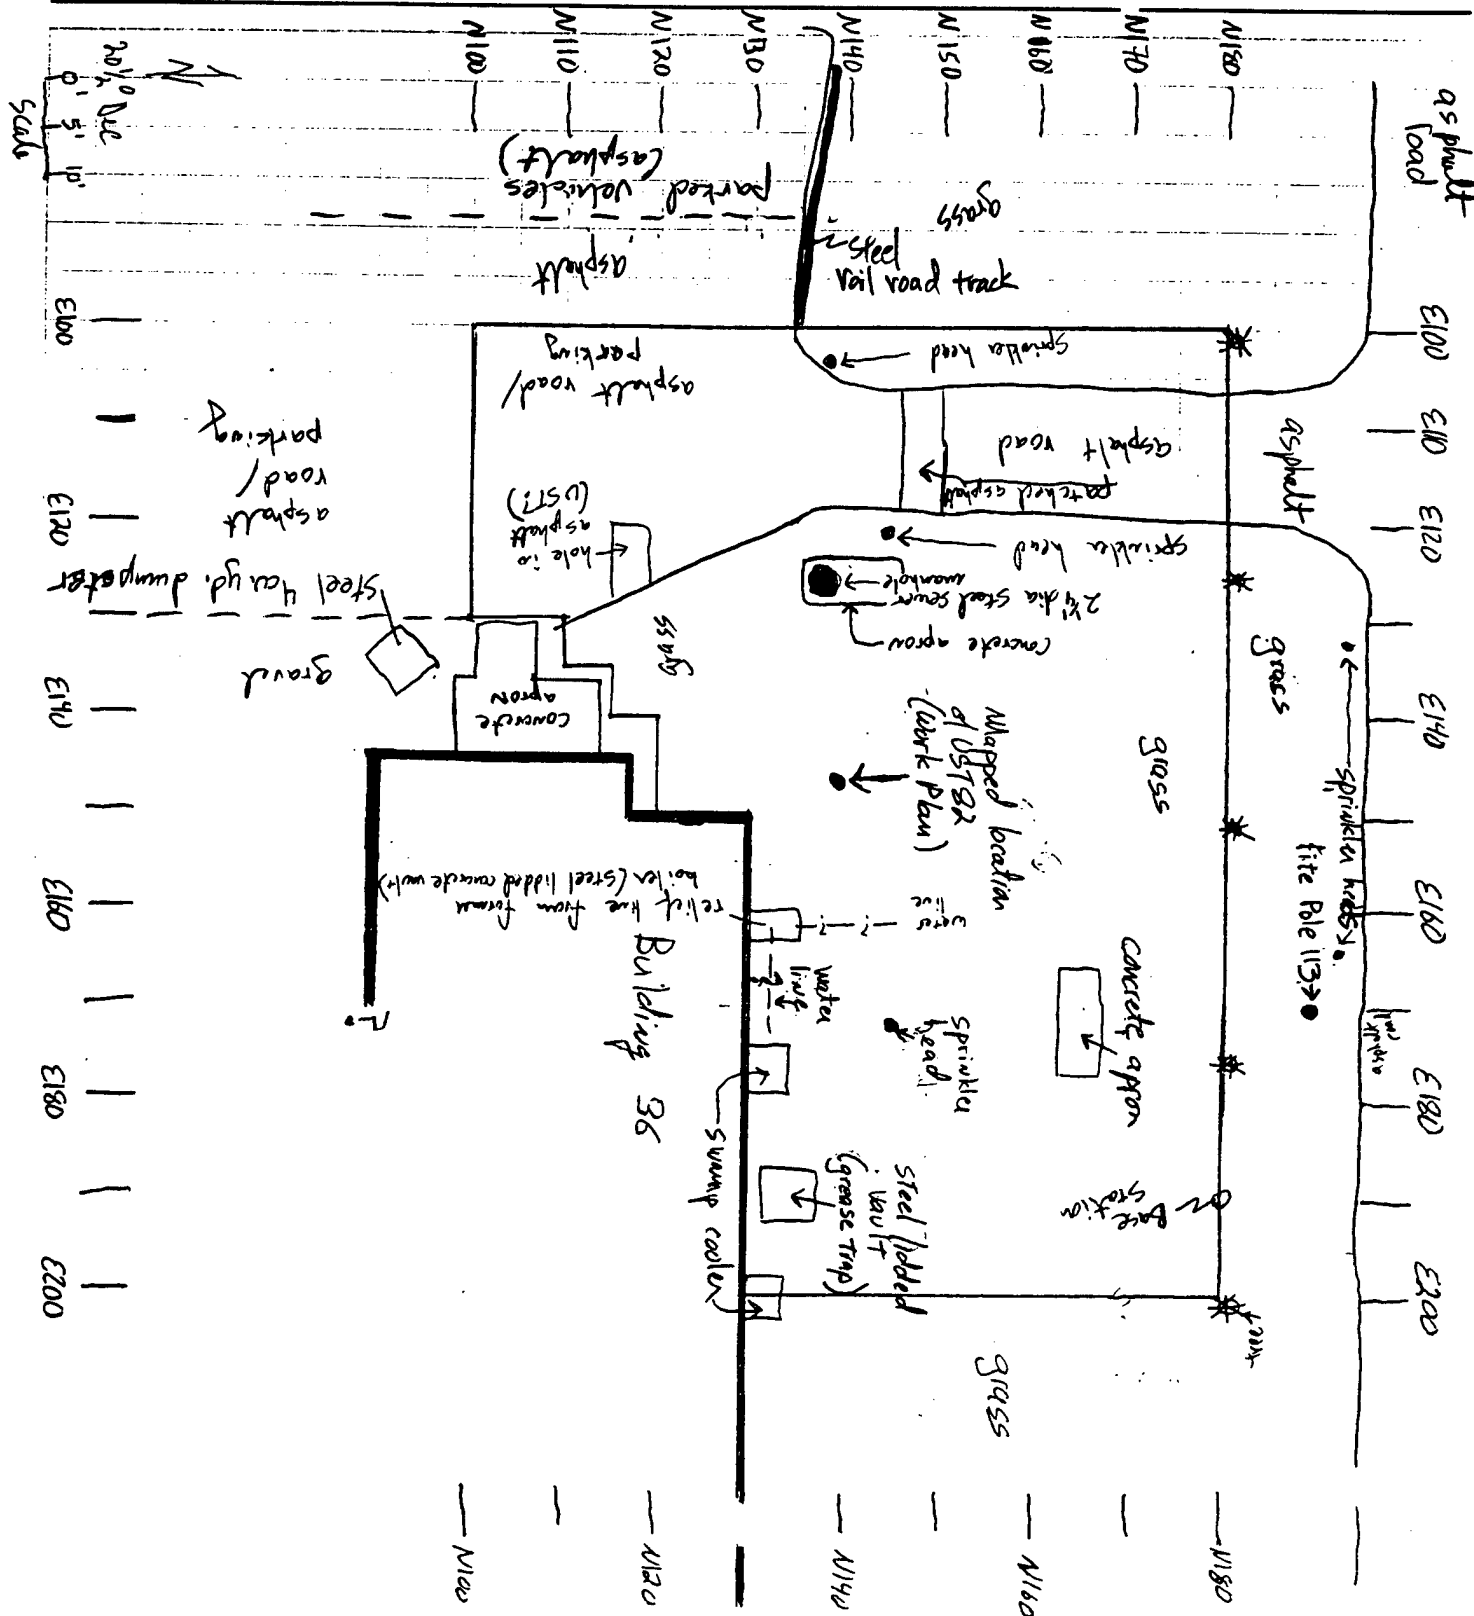 asphalt
road
N100
N110
N120
N130
N140
N150
N160
N170
N180
20 1/2° Dec
0'
5'
10'
Scale
parked vehicles
(asphalt)
asphalt
grass
steel
rail road track
E100
E110
E120
E140
E160
E180
E200
E100
E120
E140
E160
E180
E200
sprinkler head
asphalt road/
parking
asphalt
road/
parking
asphalt road
patched asphalt
asphalt
hole in
asphalt
(UST?)
sprinkler head
2 1/4' dia steel sewer
manhole
concrete apron
steel 4 cu yd. dumpster
gravel
concrete
apron
grass
grass
grass
sprinkler heads
fire Pole 113
asphalt
Mapped location
of UST 82
(Work Plan)
relief line from former
boiler (steel lidded concrete vault)
water
line
?
?
water
line
?
Building 36
?
sprinkler
head
concrete apron
swamp cooler
steel lidded
vault
(grease trap)
Base
station
tree
grass
N100
N120
N140
N160
N180